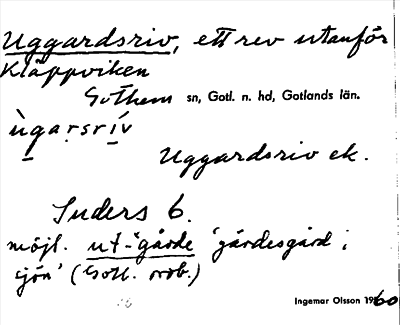 Uggardsriv, ett rev utanför
Kläppviken
Gothem sn, Gotl. n. hd, Gotlands län.
ùgarsrív
Uggardsriv ek.
Suders 6.
möjl. ut-gärde 'gärdesgård i
sjön' (Gotl. ordb.)
Ingemar Olsson 1960